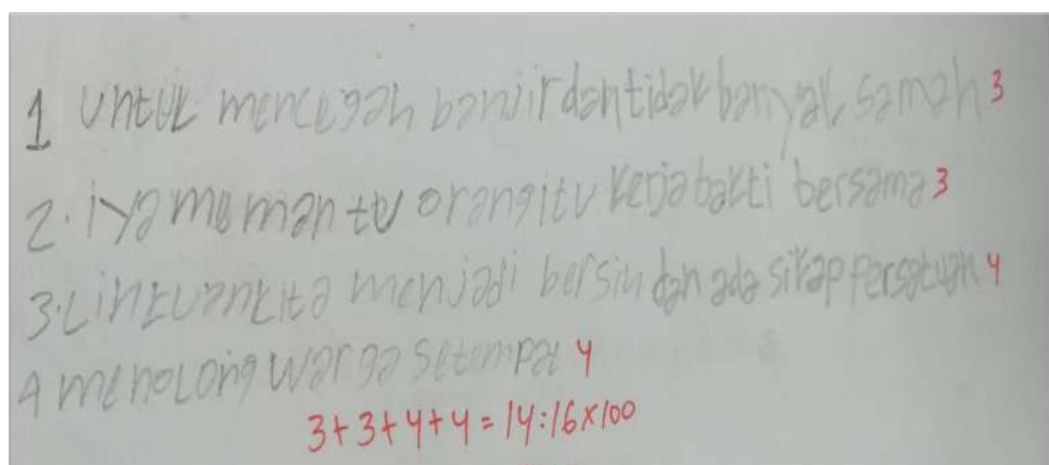 1 untuk mencegah banjir dan tidak banyak samah 3
2. iya memantu orang itu kerja bakti bersama 3
3. Linkuankita menjadi bersin dan ada sikap persatuan 4
4 menolong warga setempat 4
3+3+4+4=14:16x100